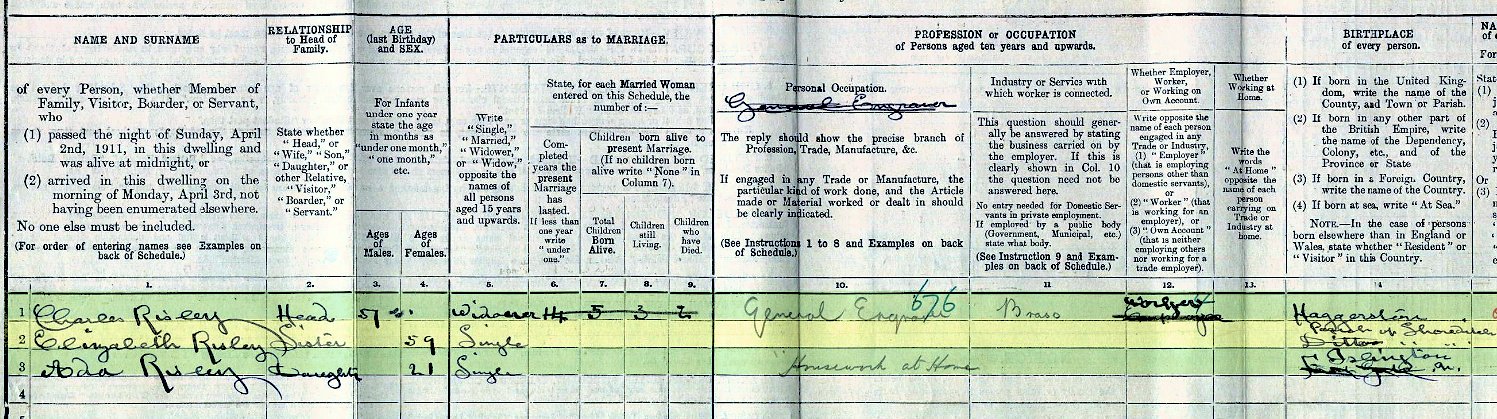 NAME AND SURNAME
of every Person, whether Member of
Family, Visitor, Boarder, or Servant,
who
(1) passed the night of Sunday, April
2nd, 1911, in this dwelling and
was alive at midnight, or
(2) arrived in this dwelling on the
morning of Monday, April 3rd, not
having been enumerated elsewhere.
No one else must be included.
(For order of entering names see Examples on
back of Schedule.)
RELATIONSHIP
to Head of
Family.
State whether
"Head," or
"Wife," "Son,"
"Daughter," or
other Relative,
"Visitor,"
"Boarder," or
"Servant."
AGE
(last Birthday)
and SEX.
For Infants
under one year
state the age
in months as
"under one month,"
"one month,"
etc.
Ages
of
Males.
Ages
of
Females.
PARTICULARS as to MARRIAGE.
Write
"Single,"
"Married,"
"Widower,"
or "Widow,"
opposite the
names of
all persons
aged 15 years
and upwards.
State, for each Married Woman
entered on this Schedule, the
number of:—
Com-
pleted
years the
present
Marriage
has
lasted.
If less than
one year
write
"under
one."
Children born alive to
present Marriage.
(If no children born
alive write "None" in
Column 7).
Total
Children
Born
Alive.
Children
still
Living.
Children
who
have
Died.
PROFESSION or OCCUPATION
of Persons aged ten years and upwards.
Personal Occupation.
General Engraver
The reply should show the precise branch of
Profession, Trade, Manufacture, &c.
If engaged in any Trade or Manufacture, the
particular kind of work done, and the Article
made or Material worked or dealt in should
be clearly indicated.
(See Instructions 1 to 8 and Examples on back
of Schedule.)
Industry or Service with
which worker is connected.
This question should gener-
ally be answered by stating
the business carried on by
the employer. If this is
clearly shown in Col. 10
the question need not be
answered here.
No entry needed for Domestic Ser-
vants in private employment.
If employed by a public body
(Government, Municipal, etc.)
state what body.
(See Instruction 9 and Exam-
ples on back of Schedule.)
Whether Employer,
Worker,
or Working on
Own Account.
Write opposite the
name of each person
engaged in any
Trade or Industry,
(1) "Employer"
(that is employing
persons other than
domestic servants),
or
(2) "Worker" (that
is working for an
employer), or
(3) "Own Account"
(that is neither
employing others
nor working for a
trade employer).
Whether
Working at
Home.
Write the
words
"At Home"
opposite the
name of each
person
carrying on
Trade or
Industry at
home.
BIRTHPLACE
of every person.
(1) If born in the United King-
dom, write the name of the
County, and Town or Parish.
(2) If born in any other part of
the British Empire, write
the name of the Dependency,
Colony, etc., and of the
Province or State
(3) If born in a Foreign Country,
write the name of the Country.
(4) If born at sea, write "At Sea."
NOTE.—In the case of persons
born elsewhere than in England or
Wales, state whether "Resident" or
"Visitor" in this Country.
NA
of e
1. 2. 3. 4. 5. 6. 7. 8. 9. 10. 11 12. 13. 14
1 Charles Risley Head 57 Widower 14 5 3 2 General Engraver 676 Brass Worker Haggerston
Parish of Shoreditch
2 Elizabeth Risley Sister 59 Single Ditto
3 Ada Risley Daughter 21 Single Housework at Home Islington
4